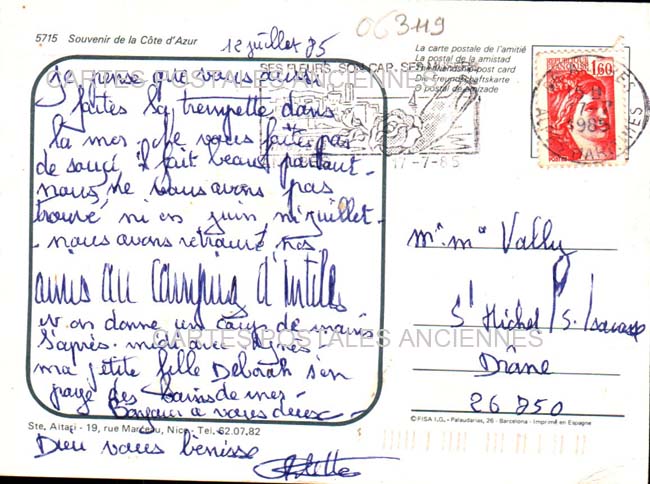 063119
5715 Souvenir de la Côte d'Azur
12 juillet 85
La carte postale de l'amitié
La postal de la amistad
The friendship post card
Die Freundschaftskarte
O postal de amizade
SES FLEURS, SON CAP, SES MUSÉES
17-7-85
1,60
1985
ALPES MARITIMES
CARTES POSTALES ANCIENNES
je pense que vous aussi
faites la trempette dans
la mer. Ne vous faites pas
de souci, il fait beau partout.
nous ne vous avons pas
trouvé ni en juin ni juillet.
nous avons retrouvé nos
amis au camping d'Antibes
on donne un coup de mains
l'après-midi avec
ma petite fille Deborah s'en
paye des bains de mer.
Bonjour à vous deux
Dieu vous bénisse
Arlette
Mr Me Vally
St Michel /S. Savasse
Drôme
26750
CARTES POSTALES ANCIENNES
© FISA I.G. - Palaudarias, 26 - Barcelona - Imprimé en Espagne
Ste. Aitari - 19, rue Marceau, Nice - Tel. 62.07.82